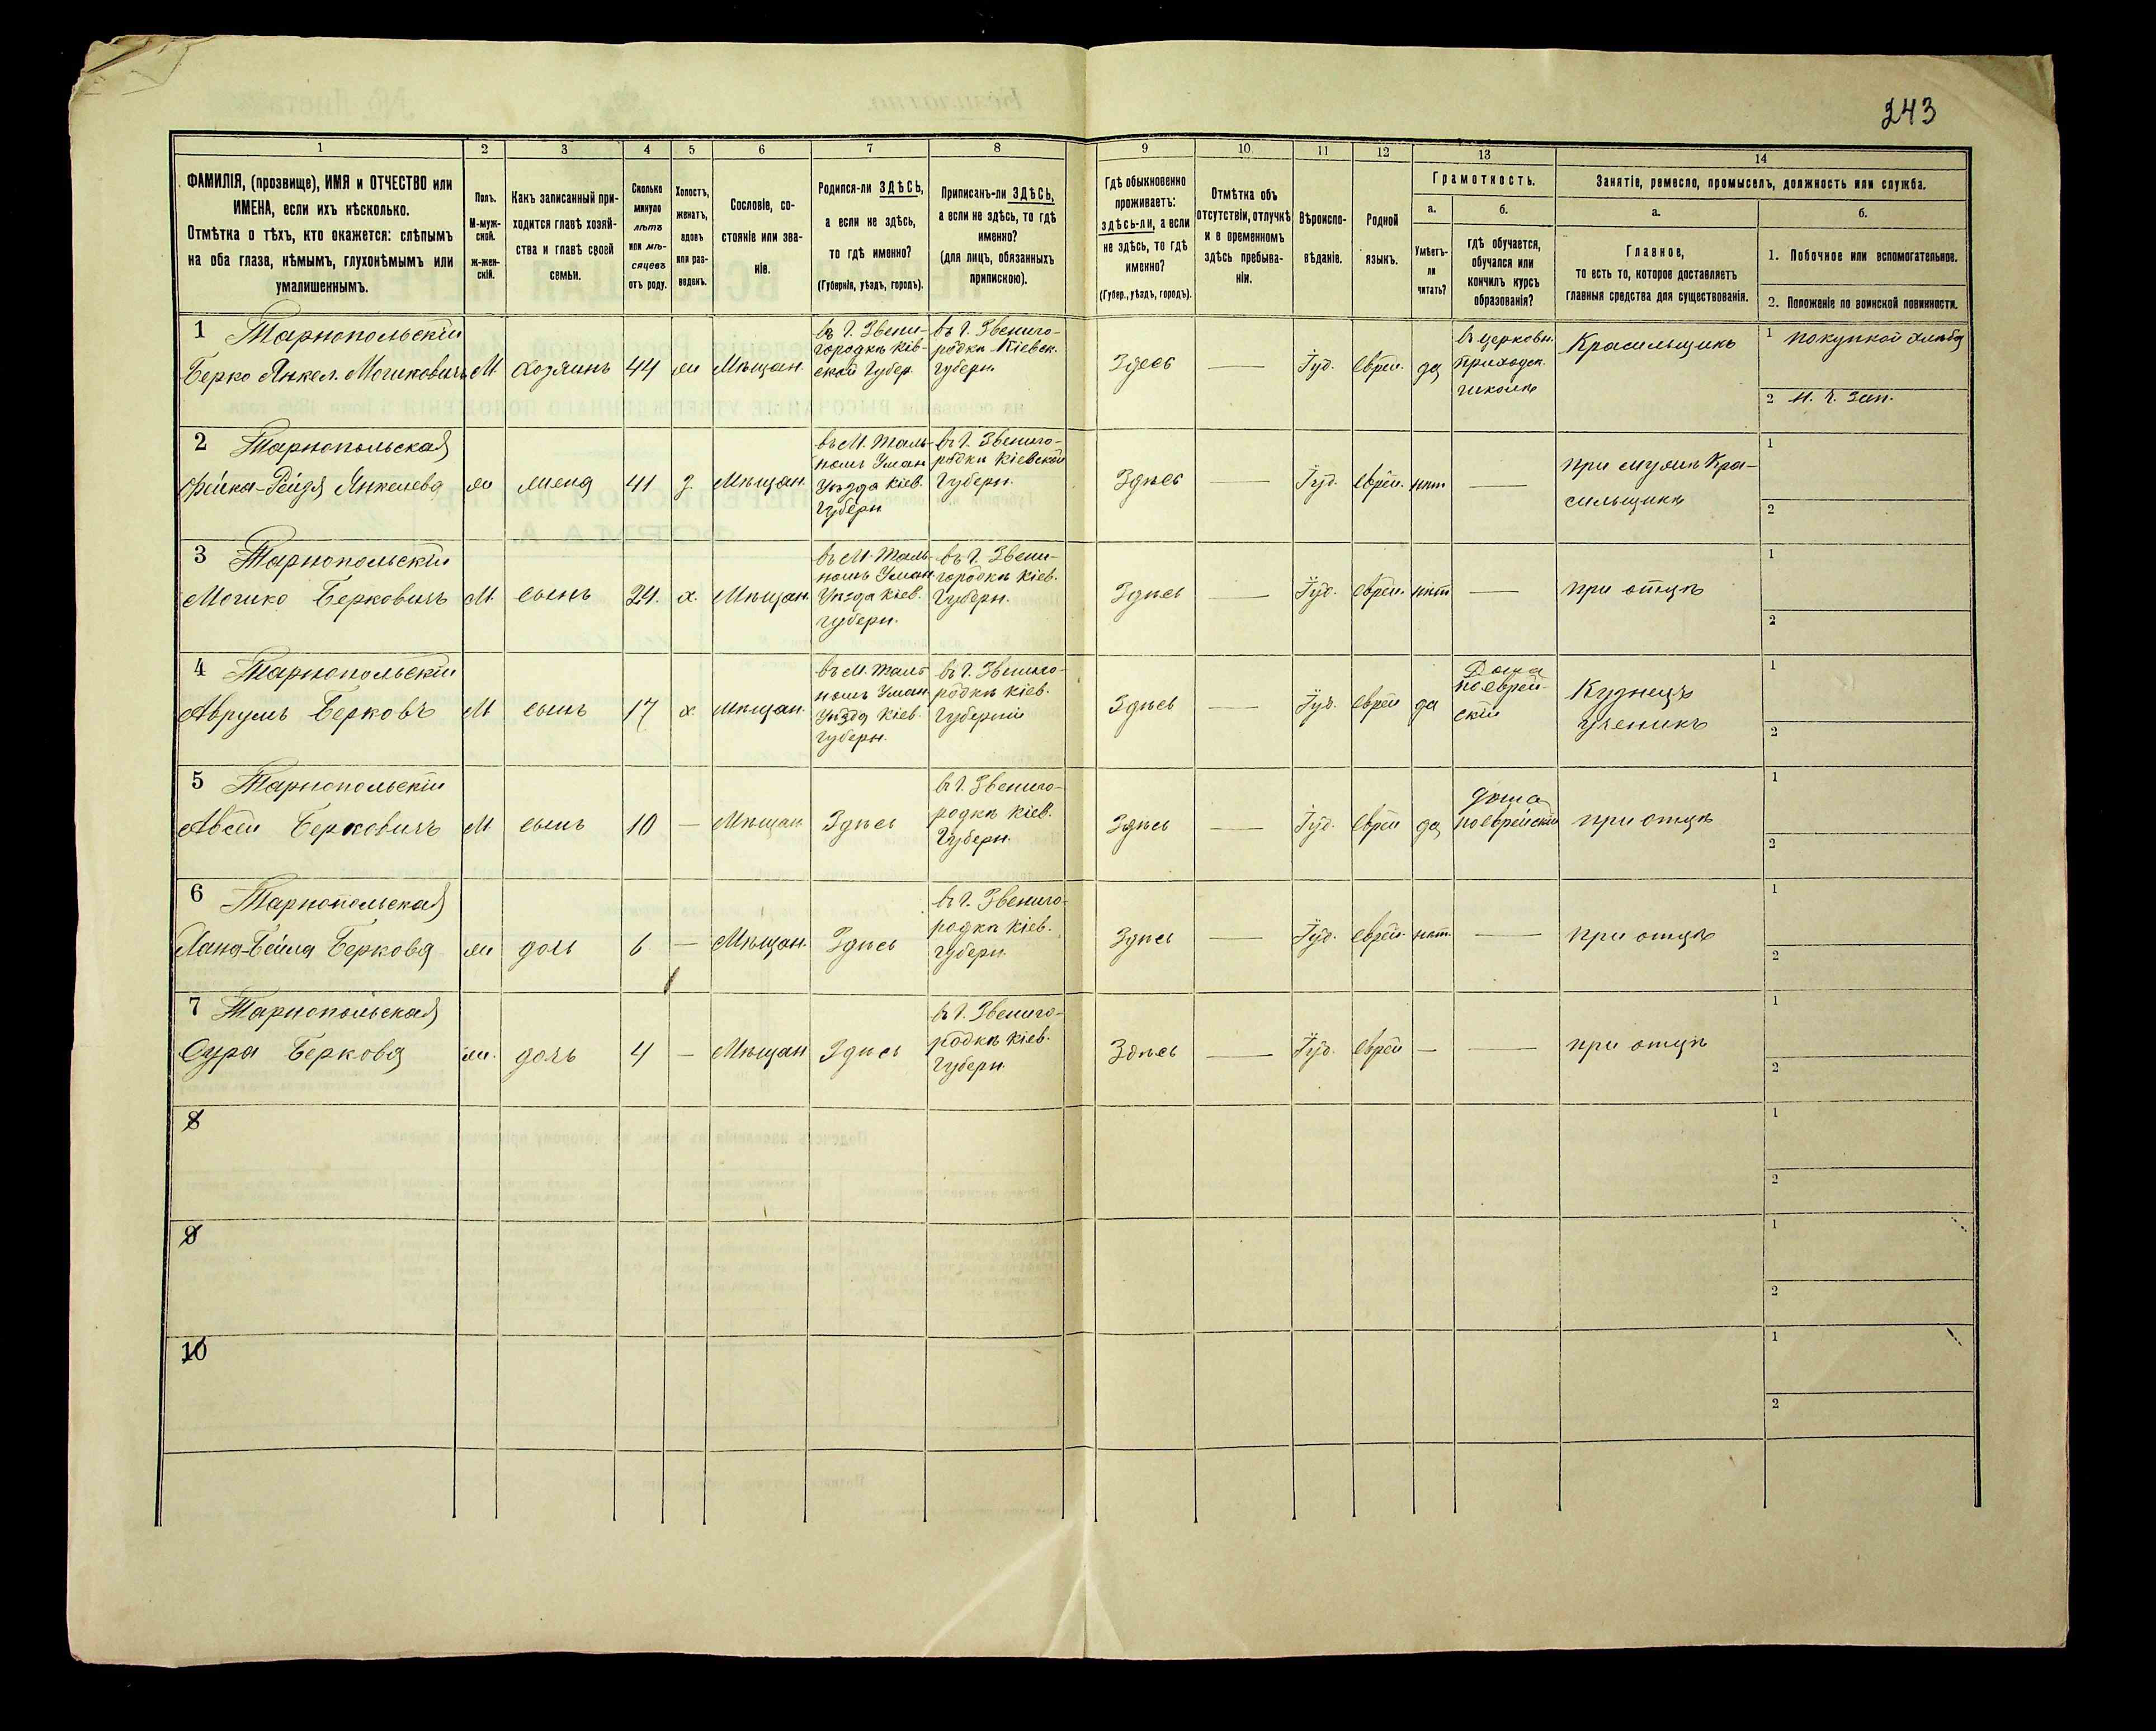 243
1
2
3
4
5
6
7
8
9
10
11
12
13
14
ФАМИЛІЯ, (прозвище), ИМЯ и ОТЧЕСТВО или
ИМЕНА, если ихъ нѣсколько.
Отмѣтка о тѣхъ, кто окажется: слѣпымъ
на оба глаза, нѣмымъ, глухонѣмымъ или
умалишеннымъ.
Полъ.
М-муж-
ской.
Ж-жен-
скій.
Какъ записанный при-
ходится главѣ хозяй-
ства и главѣ своей
семьи.
Сколько
минуло
лѣтъ
или мѣ-
сяцевъ
отъ роду.
Холостъ,
женатъ,
вдовъ
или раз-
веденъ.
Сословіе, со-
стояніе или зва-
ніе.
Родился-ли ЗДѢСЬ,
а если не здѣсь,
то гдѣ именно?
(Губернія, уѣздъ, городъ).
Приписанъ-ли ЗДѢСЬ,
а если не здѣсь, то гдѣ
именно?
(для лицъ, обязанныхъ
припискою).
Гдѣ обыкновенно
проживаетъ:
здѣсь-ли, а если
не здѣсь, то гдѣ
именно?
(Губер., уѣздъ, городъ).
Отмѣтка объ
отсутствіи, отлучкѣ
и о временномъ
здѣсь пребыва-
ніи.
Вѣроиспо-
вѣданіе.
Родной
языкъ.
Грамотность.
а.
Умѣетъ-
ли
читать?
б.
гдѣ обучается,
обучался или
кончилъ курсъ
образованія?
Занятіе, ремесло, промыселъ, должность или служба.
а.
Главное,
то есть то, которое доставляетъ
главныя средства для существованія.
б.
1. Побочное или вспомогательное.
2. Положеніе по воинской повинности.
1 Тарнопольскій
Берко Янкел. Мошковичъ
М
хозяинъ
44
ж
Мѣщан.
въ Г. Звени-
городкѣ Кіев-
ской Губер.
въ Г. Звениго-
родкѣ Кіевск.
Губерн.
Здесь
—
Іуд.
Еврей.
да
въ церковн.
приходск.
школѣ
Красильщикъ
1 покупкой хлѣба
2 Н. Ч. Зап.
2 Тарнопольская
Фейга-Рейзя Янкелева
ж
жена
41
з.
Мѣщан.
въ М. Таль-
номъ Уман
Уѣзда Кіев.
Губерн
въ Г. Звениго-
родкѣ Кіевской
Губерн.
Здѣсь
—
Іуд.
Еврей.
нѣт
—
при мужѣ Кра-
сильщикѣ
1
2
3 Тарнопольскій
Мошко Берковичъ
М.
сынъ
24.
х.
Мѣщан.
въ М. Таль-
номъ Уман.
Уѣзда Кіев.
Губерн.
въ Г. Звени-
городкѣ Кіев.
Губерн.
Здѣсь
—
Іуд.
Еврей.
нѣт
—
при отцѣ
1
2
4 Тарнопольскій
Аврумъ Берковъ
М
сынъ
17
х.
Мѣщан.
въ М. Таль
номъ Уман.
Уѣзда Кіев.
Губерн.
въ Г. Звениго-
родкѣ Кіев.
Губерніи
Здѣсь
—
Іуд.
Еврей
да
Дома
по еврей-
скій
Кузнецъ
ученикъ
1
2
5 Тарнопольскій
Авсей Берковичъ
М.
сынъ
10
—
Мѣщан
Здѣсь
въ Г. Звениго-
родкѣ Кіев.
Губерн.
Здѣсь
—
Іуд.
Еврей
да
дома
по еврейскій
при отцѣ
1
2
6 Тарнопольская
Хана-Бейла Беркова
ж
доч
6
—
Мѣщан.
Здѣсь
въ Г. Звениго-
родкѣ Кіев.
Губерн.
Здѣсь
—
Іуд.
Еврей.
нѣт.
—
при отцѣ
1
2
7 Тарнопольская
Сура Беркова
ж.
дочь
4
—
Мѣщан
Здѣсь
въ Г. Звениго-
родкѣ Кіев.
Губерн.
Здѣсь
—
Іуд.
Еврей
—
—
при отцѣ
1
2
8
1
2
9
1
2
10
1
2